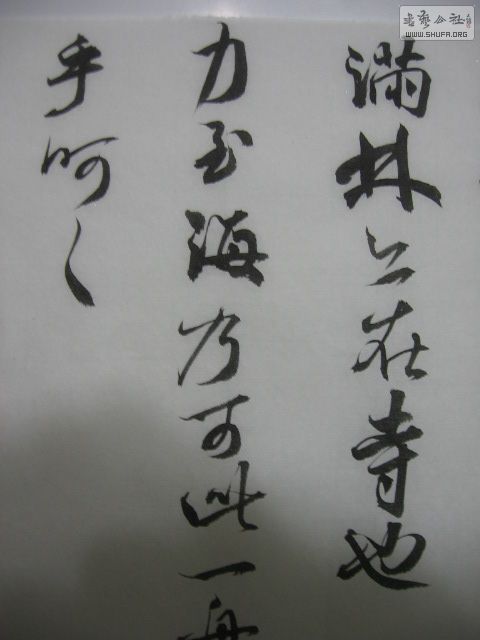 書藝公社
WWW.SHUFA.ORG
滿林在寺也
力至海乃可此一
乎呵々